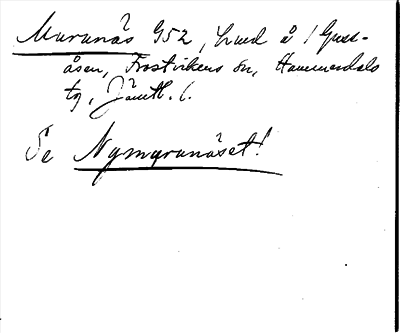 Muranäs 952, Lund å 1 Guss-
åsen, Frostvikens sn, Hammerdals
tg, Jämtl. l.
Se Nymyranäset!